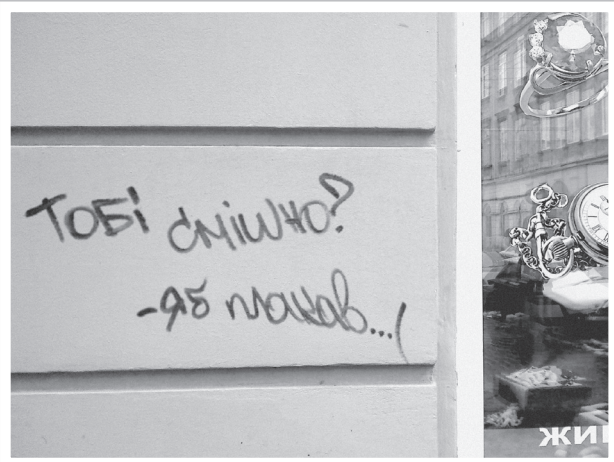 Тобі смішно?
-Я б плакав...(
ЖИ